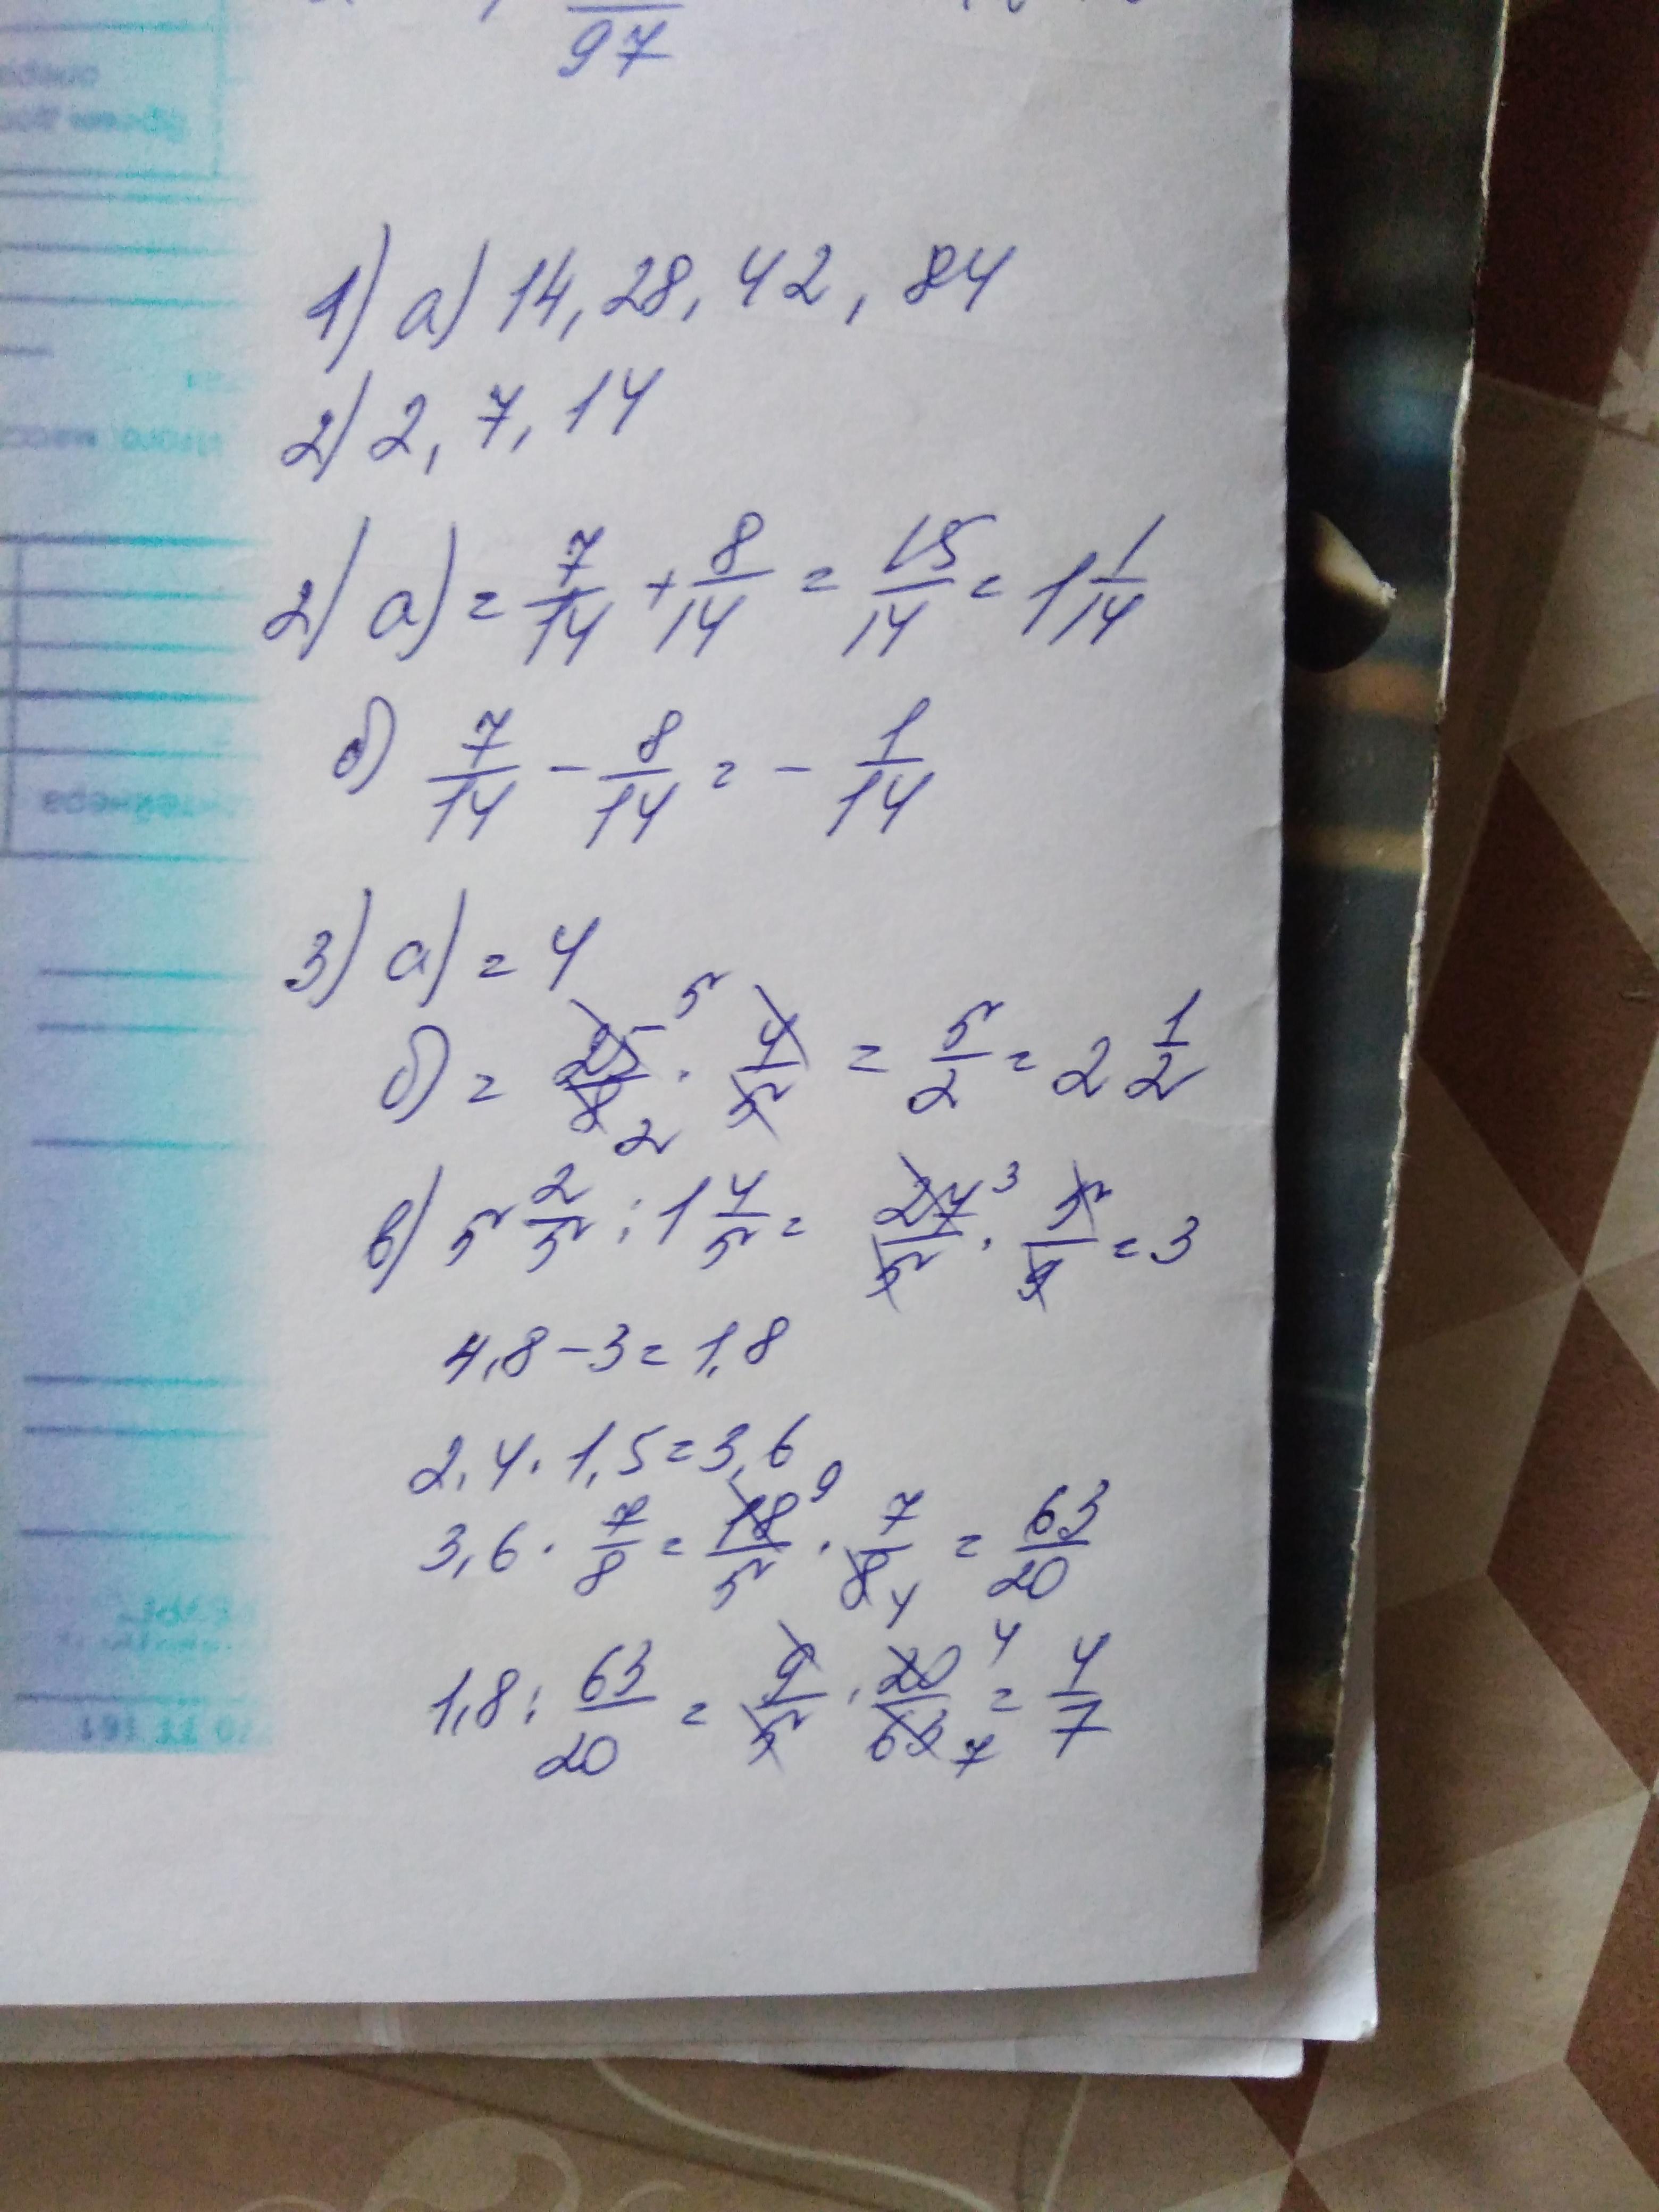 97
1) а) 14, 28, 42, 84
2) 2, 7, 14
2) а) = 7/14 + 8/14 = 15/14 = 1 1/14
б) 7/14 - 8/14 = - 1/14
3) а) = 4
б) = 25/8 5 2 · 4/5 = 5/2 = 2 1/2
в) 5 2/5 : 1 4/5 = 27/5 3 · 5/9 = 3
4,8 - 3 = 1,8
2,4 · 1,5 = 3,6
3,6 · 7/8 = 18/5 9 · 7/8 4 = 63/20
1,8 : 63/20 = 9/5 · 20/63 4 7 = 4/7